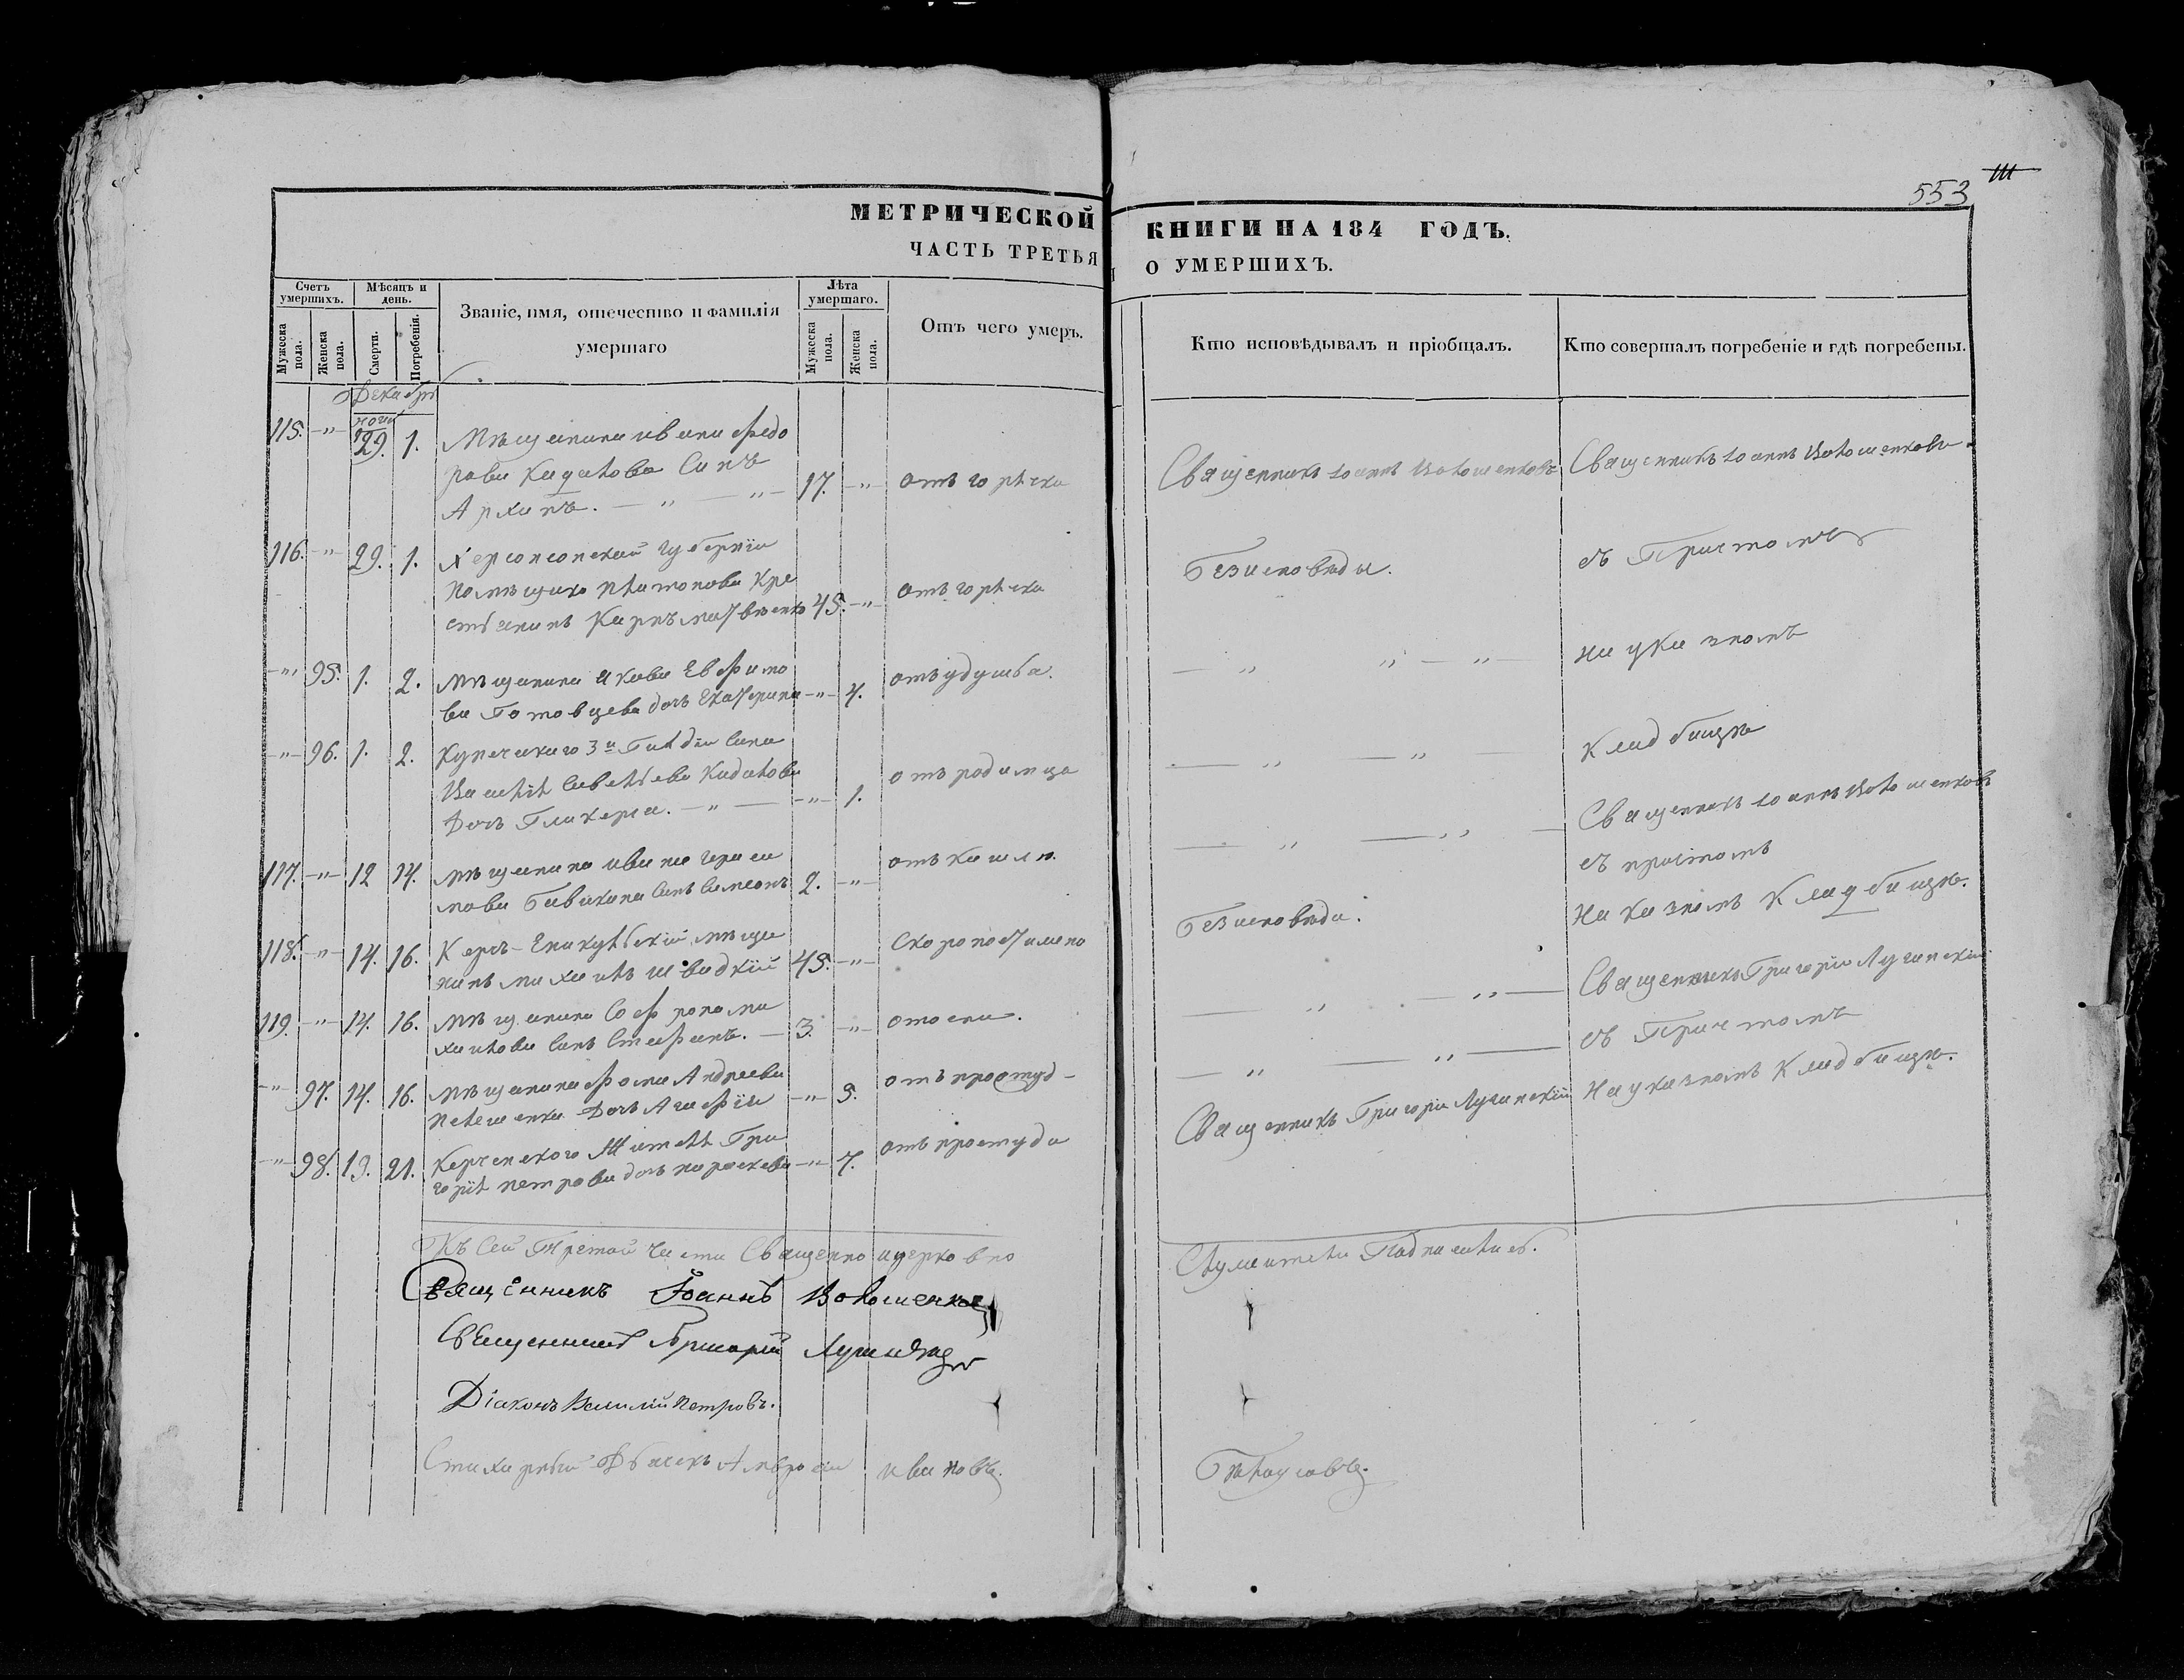 553
МЕТРИЧЕСКОЙ КНИГИ НА 184 ГОДЪ.
ЧАСТЬ ТРЕТЬЯ О УМЕРШИХЪ.
Счетъ умершихъ.
Мужеска пола.
Женска пола.
Мѣсяцъ и день.
Смерти.
Погребенія.
Званіе, имя, отечество и фамилія умершаго
Лѣта умершаго.
Мужеска пола.
Женска пола.
Отъ чего умеръ.
Кто исповѣдывалъ и пріобщалъ.
Кто совершалъ погребеніе и гдѣ погребены.
Декабрь
115. -"- 29. 1. Мѣщанина ивана федо
рова Кидалова Синъ
Архипъ. — " — "— 17. -"- отъ горячки
Священникъ Іоаннъ Волошенковъ
Священникъ Іоаннъ Волошенковъ
116. -"- 29. 1. Херсонской губерніи
помѣщика Платонова Кре
стьянинъ Карпъ 45. -"- отъ горячки
Без исповѣди.
съ Причтомъ
-"- 95. 1. 2. мѣщанина Якова Евфимо
ва Готовцева дочь Екатерина -"- 4. отъ удушья.
на указномъ
-"- 96. 1. 2. Купеческаго 3й Гилдіи Сина
Василія Савельева Кидалова
Дочь Гликерія. — " — -"- 1. отъ родимца
Кладбищѣ
117. -"- 12 14. мѣщанина ивана гераси
мова Бабикина Синъ Симеонъ 2. -"- отъ кашля.
Без исповѣди.
Священникъ Іоаннъ Волошенковъ
съ причтомъ
На казномъ Кладбищѣ.
118. -"- 14. 16. Керчь-Еникульскій мѣща
нинъ михаилъ швидкій 45. -"- Скоропостижно
Священникъ Григорій Лучинскій
119. -"- 14. 16. мѣщанина Софрона ми
хайлова Синъ Стефанъ. — 3. -"- от оспи.
съ Причтомъ
-"- 97. 14. 16. мѣщанина Фоми Андреева
Пелешенка Дочь Агафія -"- 5. отъ простуд-
Священникъ Григорій Лучинскій
На указномъ Кладбищѣ.
-"- 98. 19. 21. Керченского Жителя Гри
горія петрова дочь параскева -"- 7. отъ простуди
Къ Сей Третой Части Священно ицерковно Служители Подписались.
Священникъ Іоаннъ Волошенковъ
Священникъ Григорій Лучинскій
Діаконъ Василій Петровъ.
Стихарный Дьячекъ Амвросій ивановъ. Бѣлоусовъ.